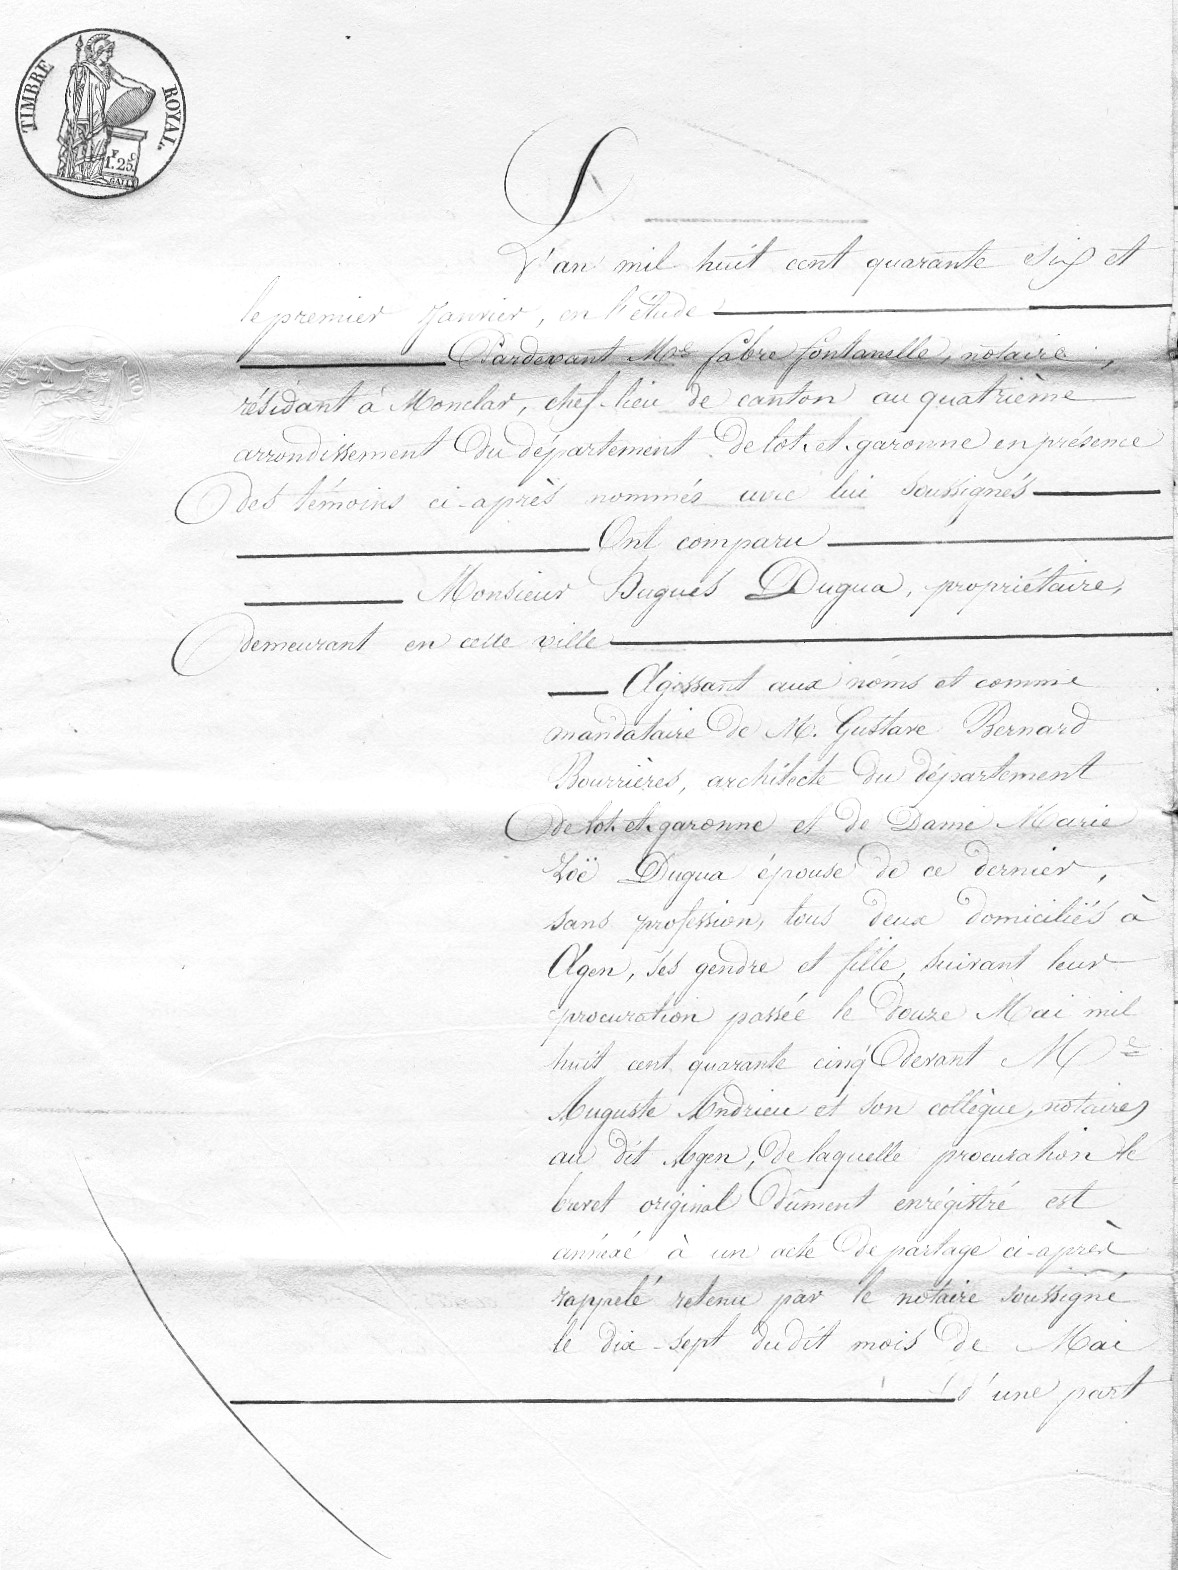 TIMBRE ROYAL
F C
1.25
L'an mil huit cent quarante six et
le premier Janvier, en l'étude
Pardevant Mre fabre fontanelle, notaire,
résidant à Monclar, chef-lieu de canton au quatrième
arrondissement du département de lot-et-garonne en présence
des témoins ci-après nommés avec lui soussignés
Ont comparu
Monsieur Hugues Dugua, propriétaire,
demeurant en cette ville
Agissant aux noms et comme
mandataire de M. Gustave Bernard
Bourrières, architecte du département
de lot-et-garonne et de Dame Marie
Zoë Dugua épouse de ce dernier,
sans profession, tous deux domiciliés à
Agen, ses gendre et fille, suivant leur
procuration passée le douze Mai mil
huit cent quarante cinq devant Me
Auguste Andrieu et son collègue, notaires
au dit Agen, de laquelle procuration le
brevet original dûment enrégistré est
annéxé à un acte de partage ci-après
rappelé retenu par le notaire soussigné
le dix-sept dudit mois de Mai
d'une part